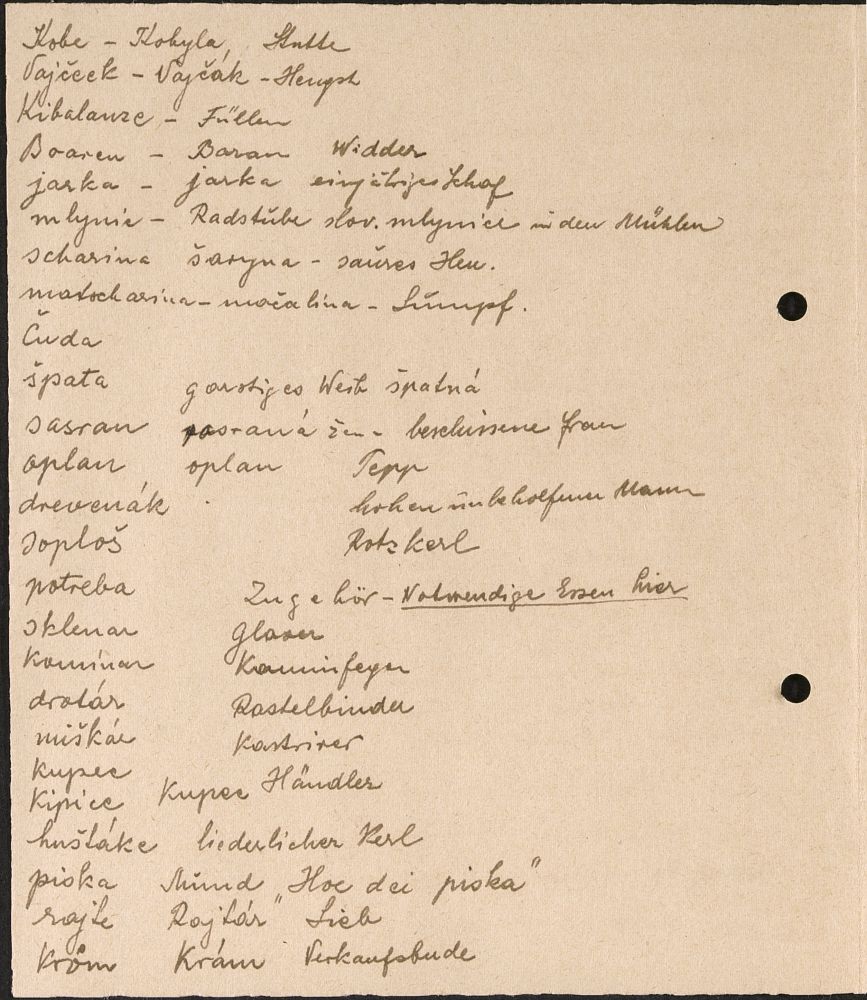 Kobe – Kobyla, Stutte
Vajček – Vajčák – Hengst
Kibalanze – Füllen
Boaren – Baran Widder
jarka – jarka einjähriges Schaf
mlynic – Radstube slov. mlynice in den Mühlen
scharina šaryna – saures Heu.
matscharina – močalina – Sumpf.
Čuda
špata garstiges Weib špatná
sasran sasraná žen – beschissene Frau
oplan oplan Tepp
drevenák hohen unbeholfenen Mann
soploš Rotzkerl
potreba Zugehör – Notwendige Essen hier
sklenar Glaser
kominar Kaminfeger
drotár Rastelbinder
miškár Kastrirer
kupec
kipiec Kupec Händler
huštáke liederlicher Kerl
piska Mund „Hoc dei piska"
rajte Rajtár" Sieb
króm Krám Verkaufsbude